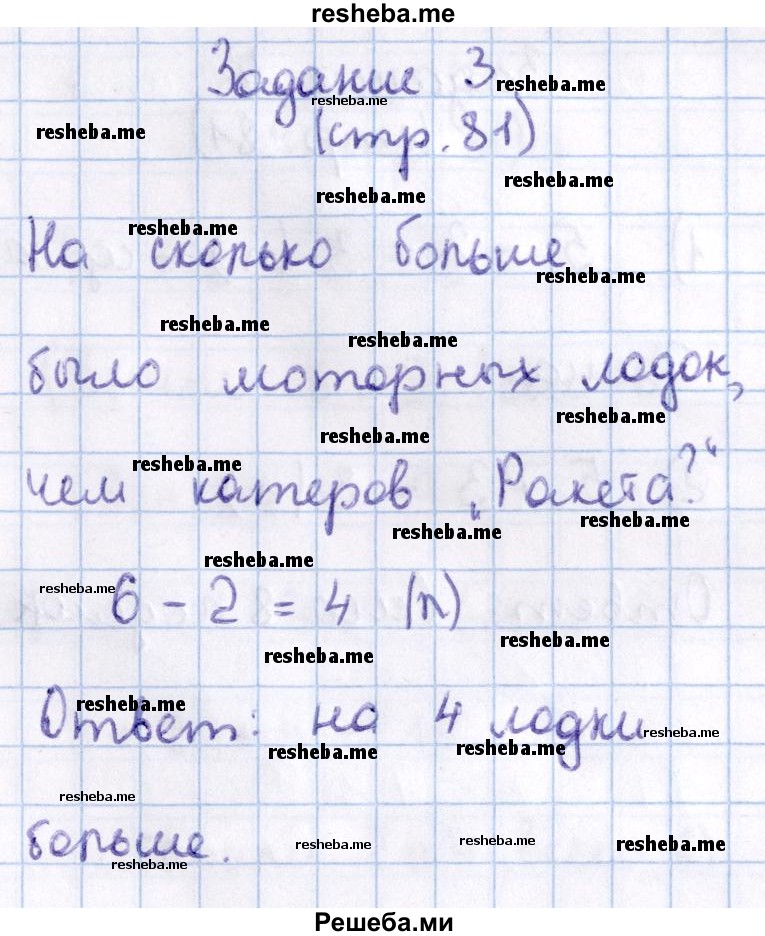 resheba.me
Задание 3 resheba.me
resheba.me
resheba.me
(стр. 81)
resheba.me
resheba.me
resheba.me
На сколько больше
resheba.me
resheba.me
resheba.me
было моторных лодок,
resheba.me
resheba.me
resheba.me
чем катеров „Ракета?“
resheba.me
resheba.me
resheba.me
resheba.me
6 - 2 = 4 (л)
resheba.me
resheba.me
resheba.me
Ответ: на 4 лодки
resheba.me
resheba.me
resheba.me
resheba.me
больше.
resheba.me
resheba.me
resheba.me
resheba.me
Решеба.ми